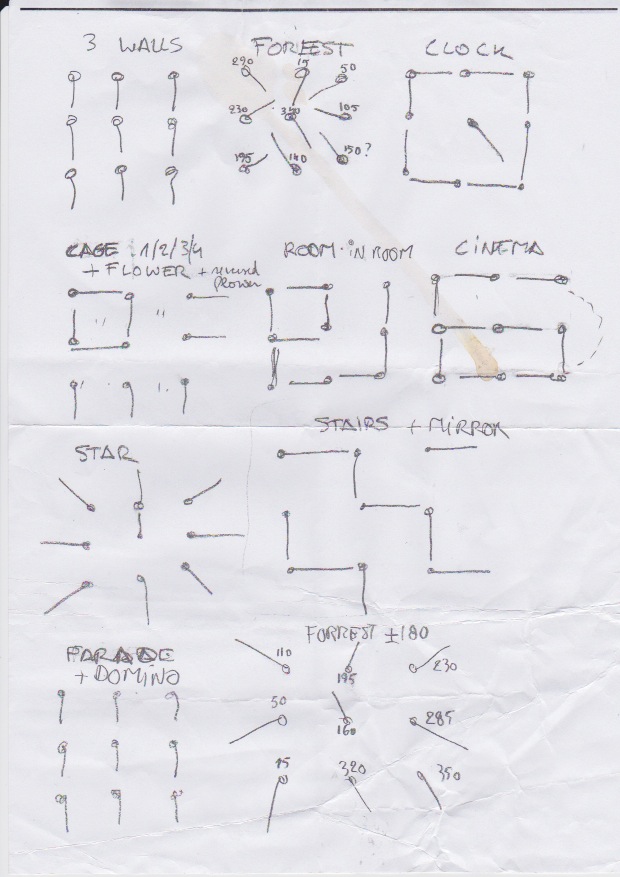 3 WALLS
FOREEST
CLOCK
290
15
50
230
340
105
195
140
150?
CAGE 1/2/3/4
+ FLOWER + reversed flower
ROOM·IN ROOM
CINEMA
STAR
STAIRS + MIRROR
PARADE
+ DOMINO
FORREST ±180
110
195
230
50
160
285
15
320
350